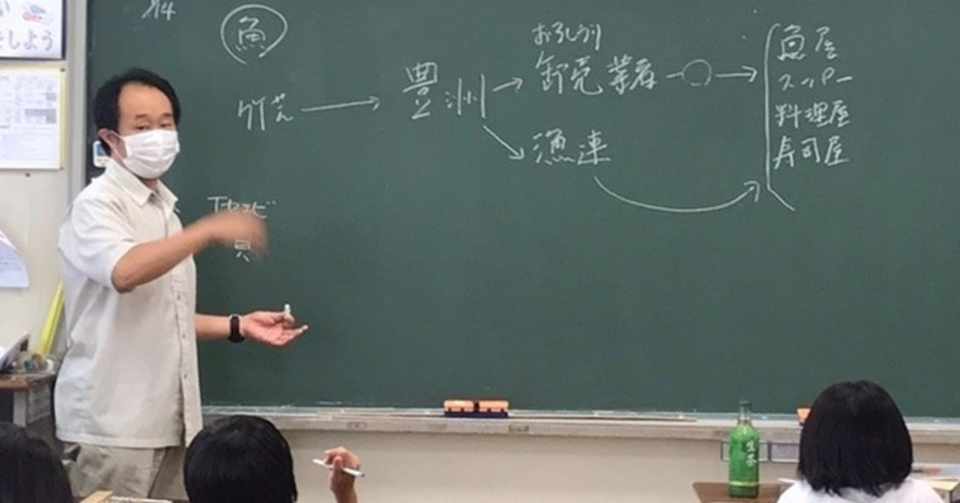 しよう
魚
竹芝
豊洲
おろしうり
卸売業者
魚屋
スーパー
料理屋
寿司屋
漁連
貝